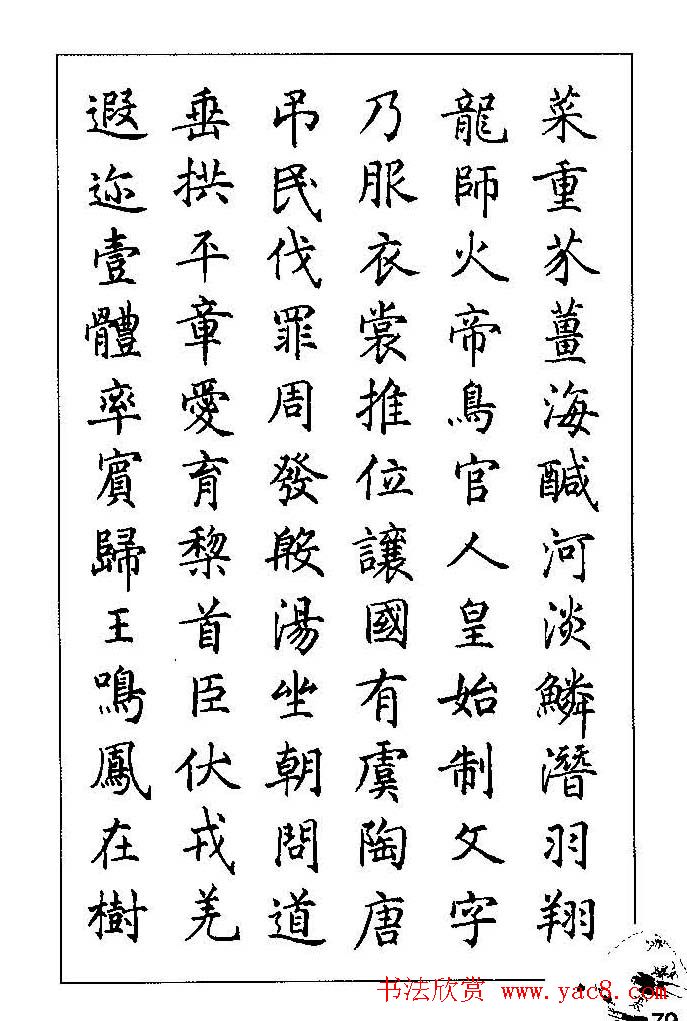 菜重芥薑海醎河淡鱗潛羽翔
龍師火帝鳥官人皇始制文字
乃服衣裳推位讓國有虞陶唐
吊民伐罪周發殷湯坐朝問道
垂拱平章愛育黎首臣伏戎羌
遐迩壹體率賓歸王鳴鳳在樹
书法欣赏 www.yac8.com